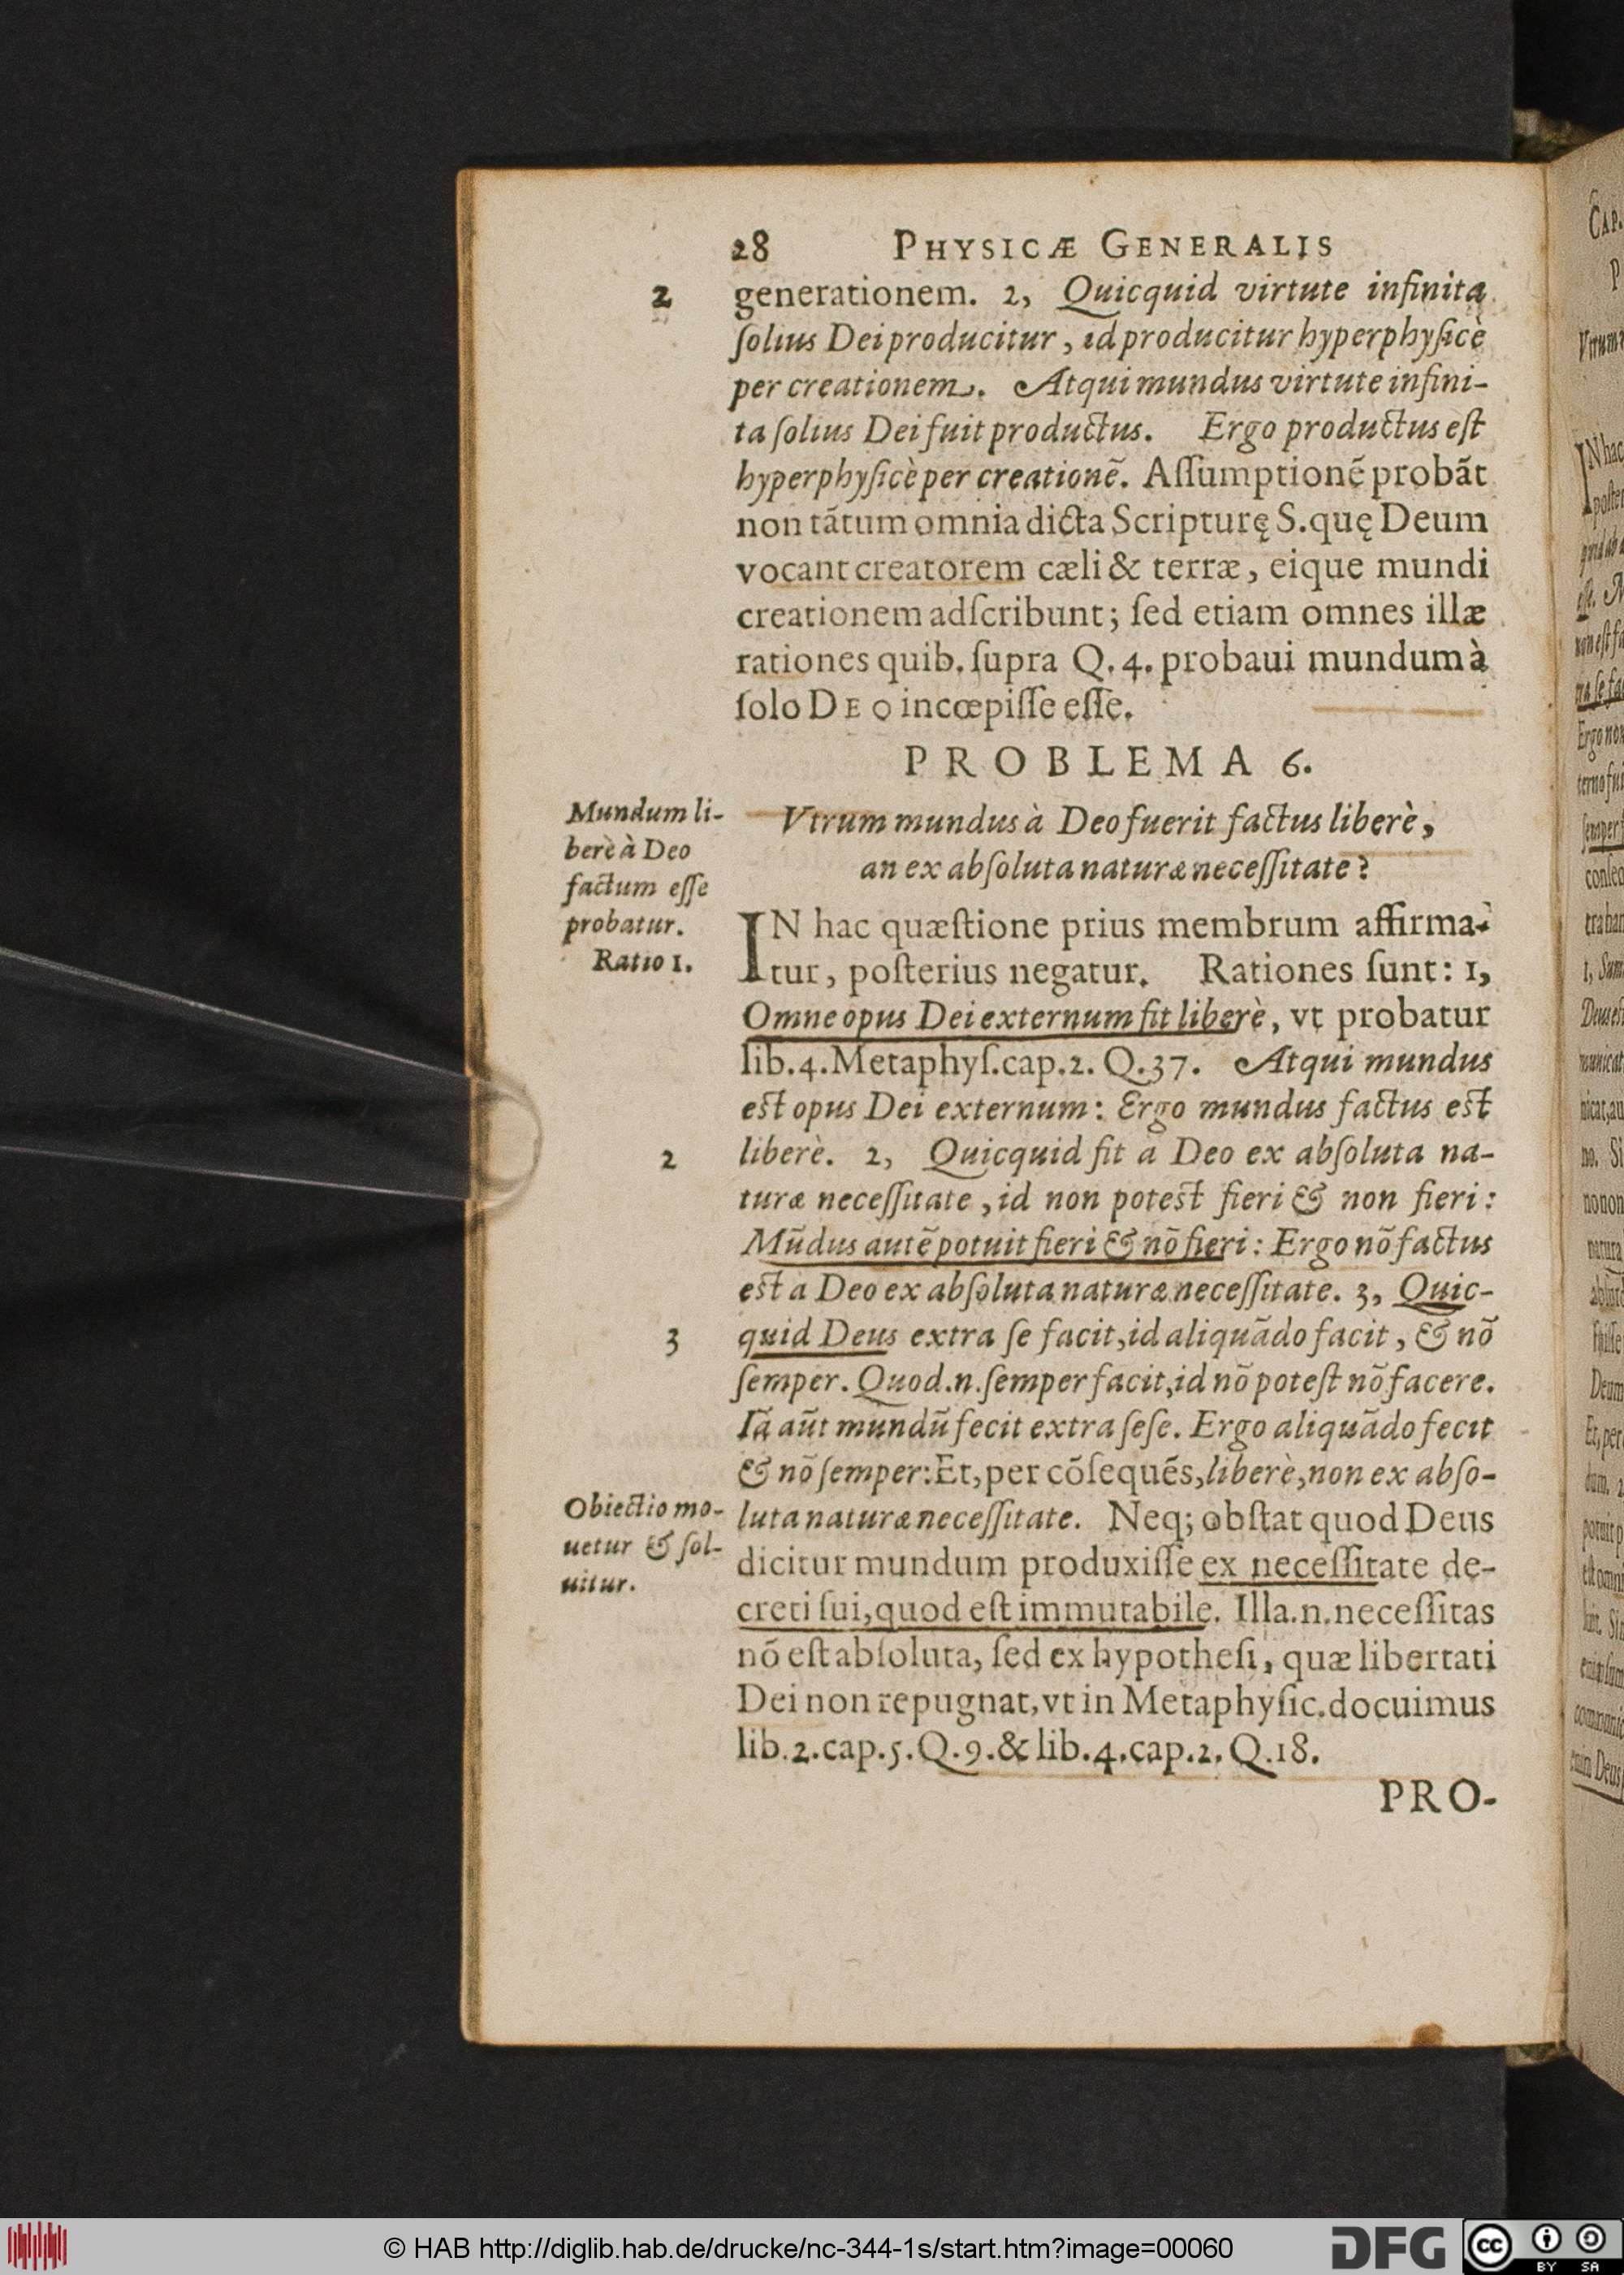 28 PHYSICÆ GENERALIS
2 generationem. 2, Quicquid virtute infinita
ſolius Dei producitur, id producitur hyperphyſicè
per creationem. Atqui mundus virtute infini-
ta ſolius Dei fuit productus. Ergo productus eſt
hyperphyſicè per creationẽ. Aſſumptionẽ probãt
non tãtum omnia dicta Scripturę S. quę Deum
vocant creatorem cæli & terræ, eique mundi
creationem adſcribunt; ſed etiam omnes illæ
rationes quib. ſupra Q. 4. probaui mundum à
ſolo DEO incœpiſſe eſſe.
PROBLEMA 6.
Mundum li-
berè à Deo
factum eſſe
probatur.
Ratio 1.
Vtrum mundus à Deo fuerit factus liberè,
an ex abſoluta naturæ neceſſitate?
IN hac quæſtione prius membrum affirma-
tur, poſterius negatur. Rationes ſunt: 1,
Omne opus Dei externum fit liberè, vt probatur
lib. 4. Metaphyſ. cap. 2. Q. 37. Atqui mundus
eſt opus Dei externum: Ergo mundus factus eſt
2 liberè. 2, Quicquid fit a Deo ex abſoluta na-
turæ neceſſitate, id non poteſt fieri & non fieri:
Mũdus autẽ potuit fieri & nõ fieri: Ergo nõ factus
eſt a Deo ex abſoluta naturæ neceſſitate. 3, Quic-
3 quid Deus extra ſe facit, id aliquãdo facit, & nõ
ſemper. Quod .n. ſemper facit, id nõ poteſt nõ facere.
Iã aũt mundũ fecit extra ſeſe. Ergo aliquãdo fecit
& nõ ſemper: Et, per cõſequẽs, liberè, non ex abſo-
luta naturæ neceſſitate. Neq; obſtat quod Deus
Obiectio mo-
uetur & ſol-
uitur.
dicitur mundum produxiſſe ex neceſſitate de-
creti ſui, quod eſt immutabile. Illa .n. neceſſitas
nõ eſt abſoluta, ſed ex hypotheſi, quæ libertati
Dei non repugnat, vt in Metaphyſic. docuimus
lib. 2. cap. 5. Q. 9. & lib. 4. cap. 2. Q. 18.
PRO-
© HAB http://diglib.hab.de/drucke/nc-344-1s/start.htm?image=00060
DFG
cc BY SA